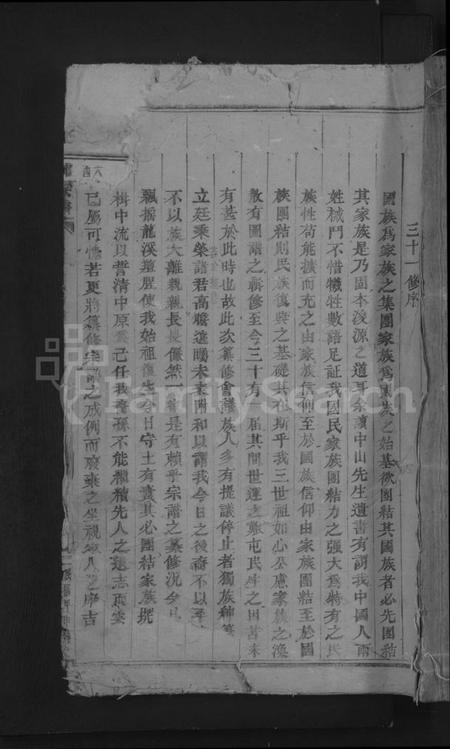 三十一修序
國族為家族之集團家族為國族之始基欲團結其國族者必先團結
其家族是乃固本浚源之道耳余讀中山先生遺書有謂我中國人兩
姓械鬥不惜犧牲數語足証我國民家族團結力之強大為特有之民
族性苟能擴而充之由家族信仰至於國族信仰由家族團結至於國
族團結則民族復興之基礎其在斯乎我三世祖如心公慮家族之渙
散有圖譜之輯修至今三十有一屆其間世運之艱屯民生之困苦未
有甚於此時也故此次纂修會議族人多有提議停止者獨族紳
立廷乘榮諸君高瞻遠矚未來附和以謂我今日之後裔不以
不以族大離親親長長儼然一 是有賴乎宗譜之纂修況今日
飄搖龍溪 使我始祖復生今日守土有責其必團結家族
楫中流以誓清中原為己任我裔孫不能繼續先人之遺志
已屬可 若更將纂修宗譜之成例而廢棄之坐視 人之序吉
FamilySearch